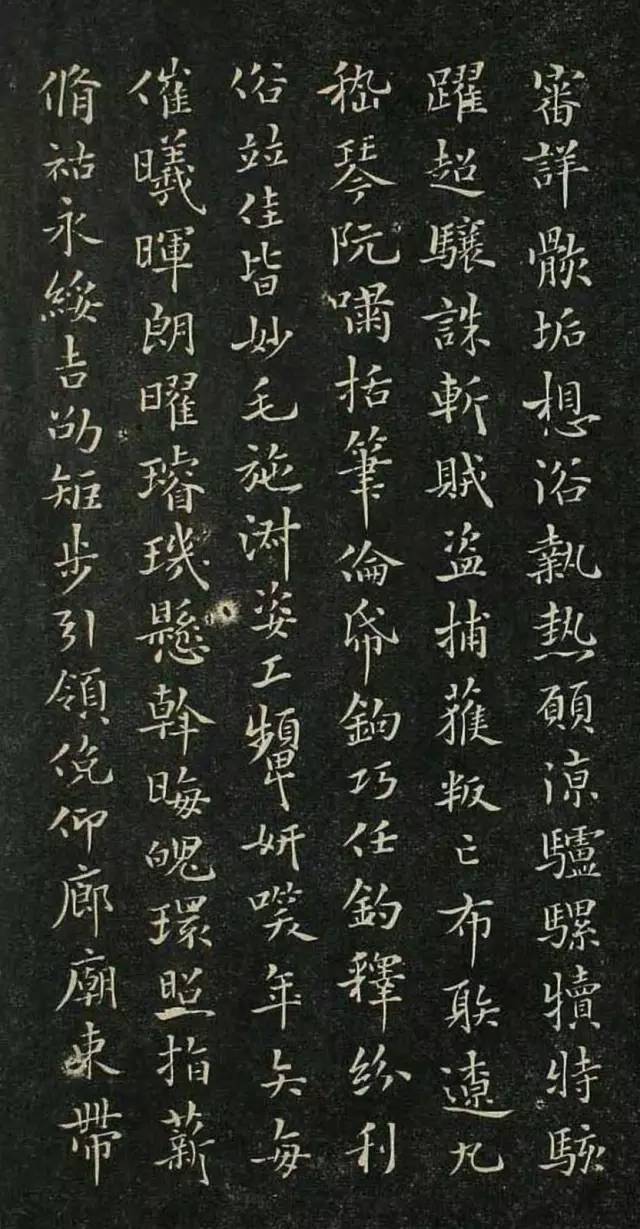 審詳骸垢想浴執熱願涼驢騾犢特駭
躍超驤誅斬賊盜捕獲叛亡布聅遼丸
嵇琴阮嘯括筆倫帋鈞巧任釣釋紛利
俗竝佳皆妙毛施淑姿工顰妍笑年矢每
催曦暉朗曜璿璣懸斡晦魄環照指薪
脩祜永綏吉劭矩步引領俛仰廊廟束帶